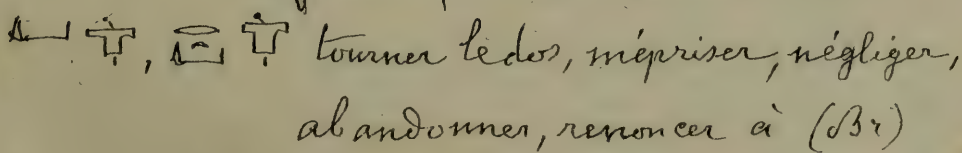 tourner le dos, mépriser, négliger,
abandonner, renoncer à (Br)